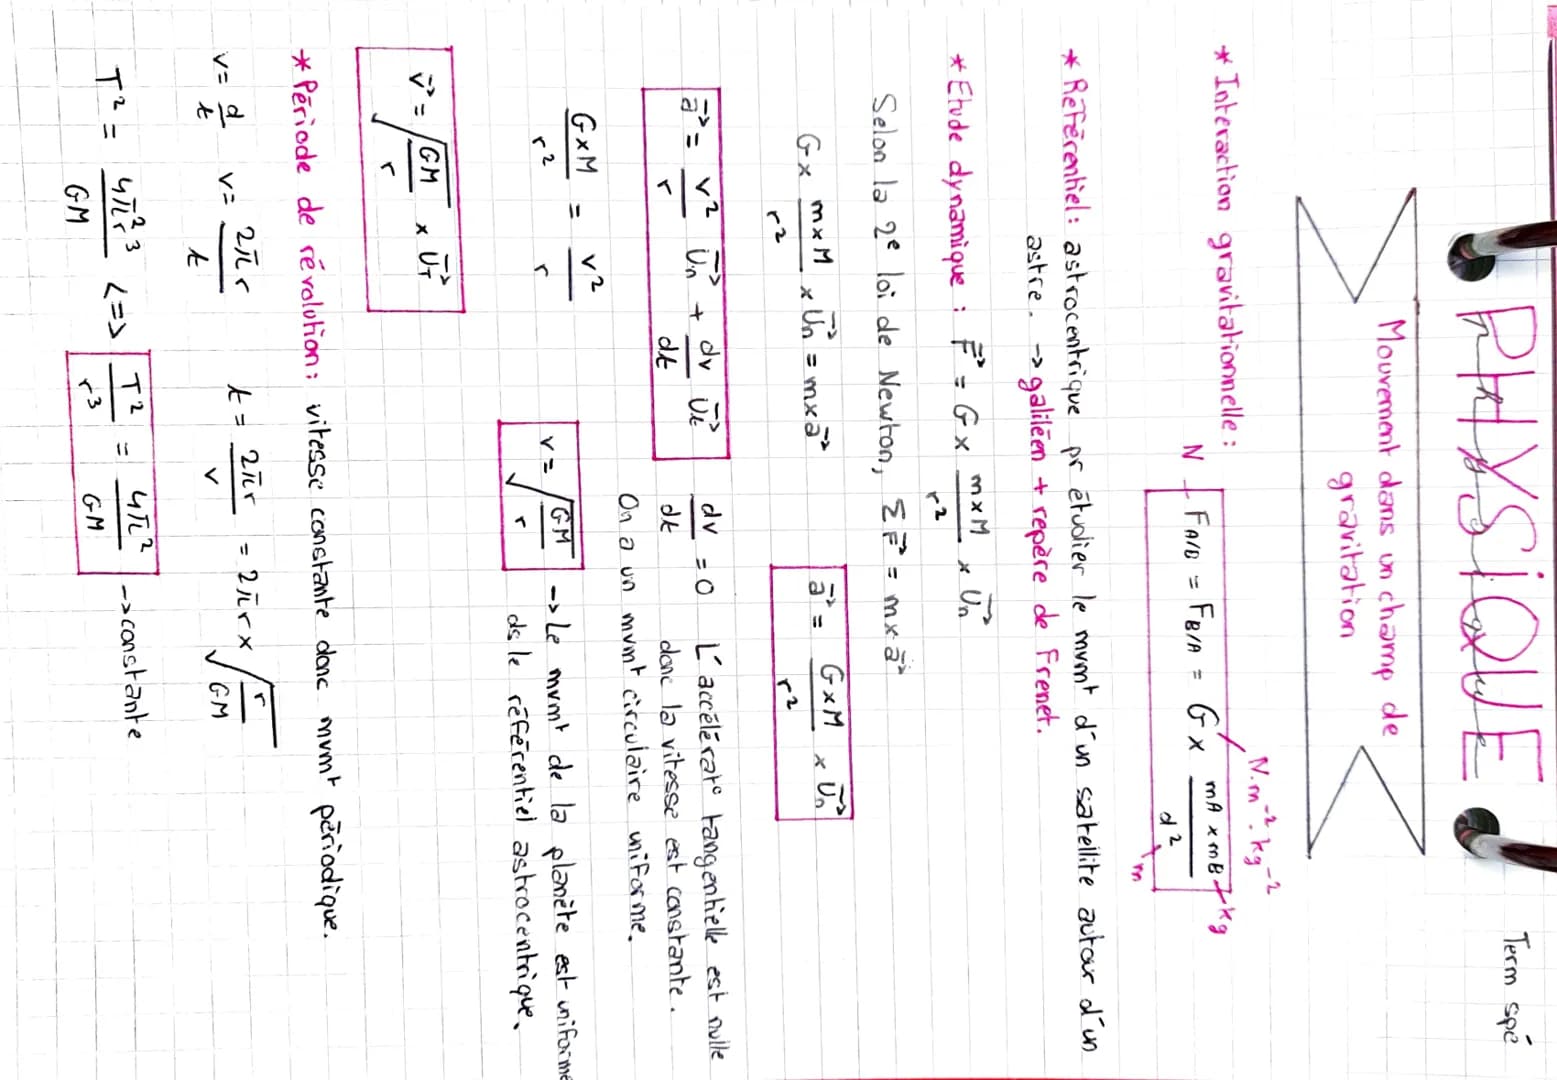 PHYSIQUE
Physique
Term spé
Mouvement dans un champ de
gravitation
* Interaction gravitationnelle :
N.m⁻².kg⁻²
N F A/B = F B/A = G x (mA x mB)/d² kg
m
* Référentiel : astrocentrique pr étudier le mvmt d'un satellite autour d'un
astre. → galiléen + repère de Frenet.
* Etude dynamique : F⃗ = G x (m x M)/r² x U⃗n
Selon la 2e loi de Newton, ΣF⃗ = m x a⃗
G x (m x M)/r² x U⃗n = m x a⃗   a⃗ = (G x M)/r² x U⃗n
a⃗ = v²/r U⃗n + dv/dt U⃗t   dv/dt = 0 L'accélérat° tangentielle est nulle
donc la vitesse est constante.
On a un mvmt circulaire uniforme.
(G x M)/r² = v²/r   v = √(GM/r) → Le mvmt de la planète est uniforme
ds le référentiel astrocentrique.
v⃗ = √(GM/r) x U⃗T
* Période de révolution : vitesse constante donc mvmt périodique.
v = d/t   v = 2πr/t   t = 2πr/v = 2πr x √(r/GM)
T² = 4π²r³/GM <=> T²/r³ = 4π²/GM → constante